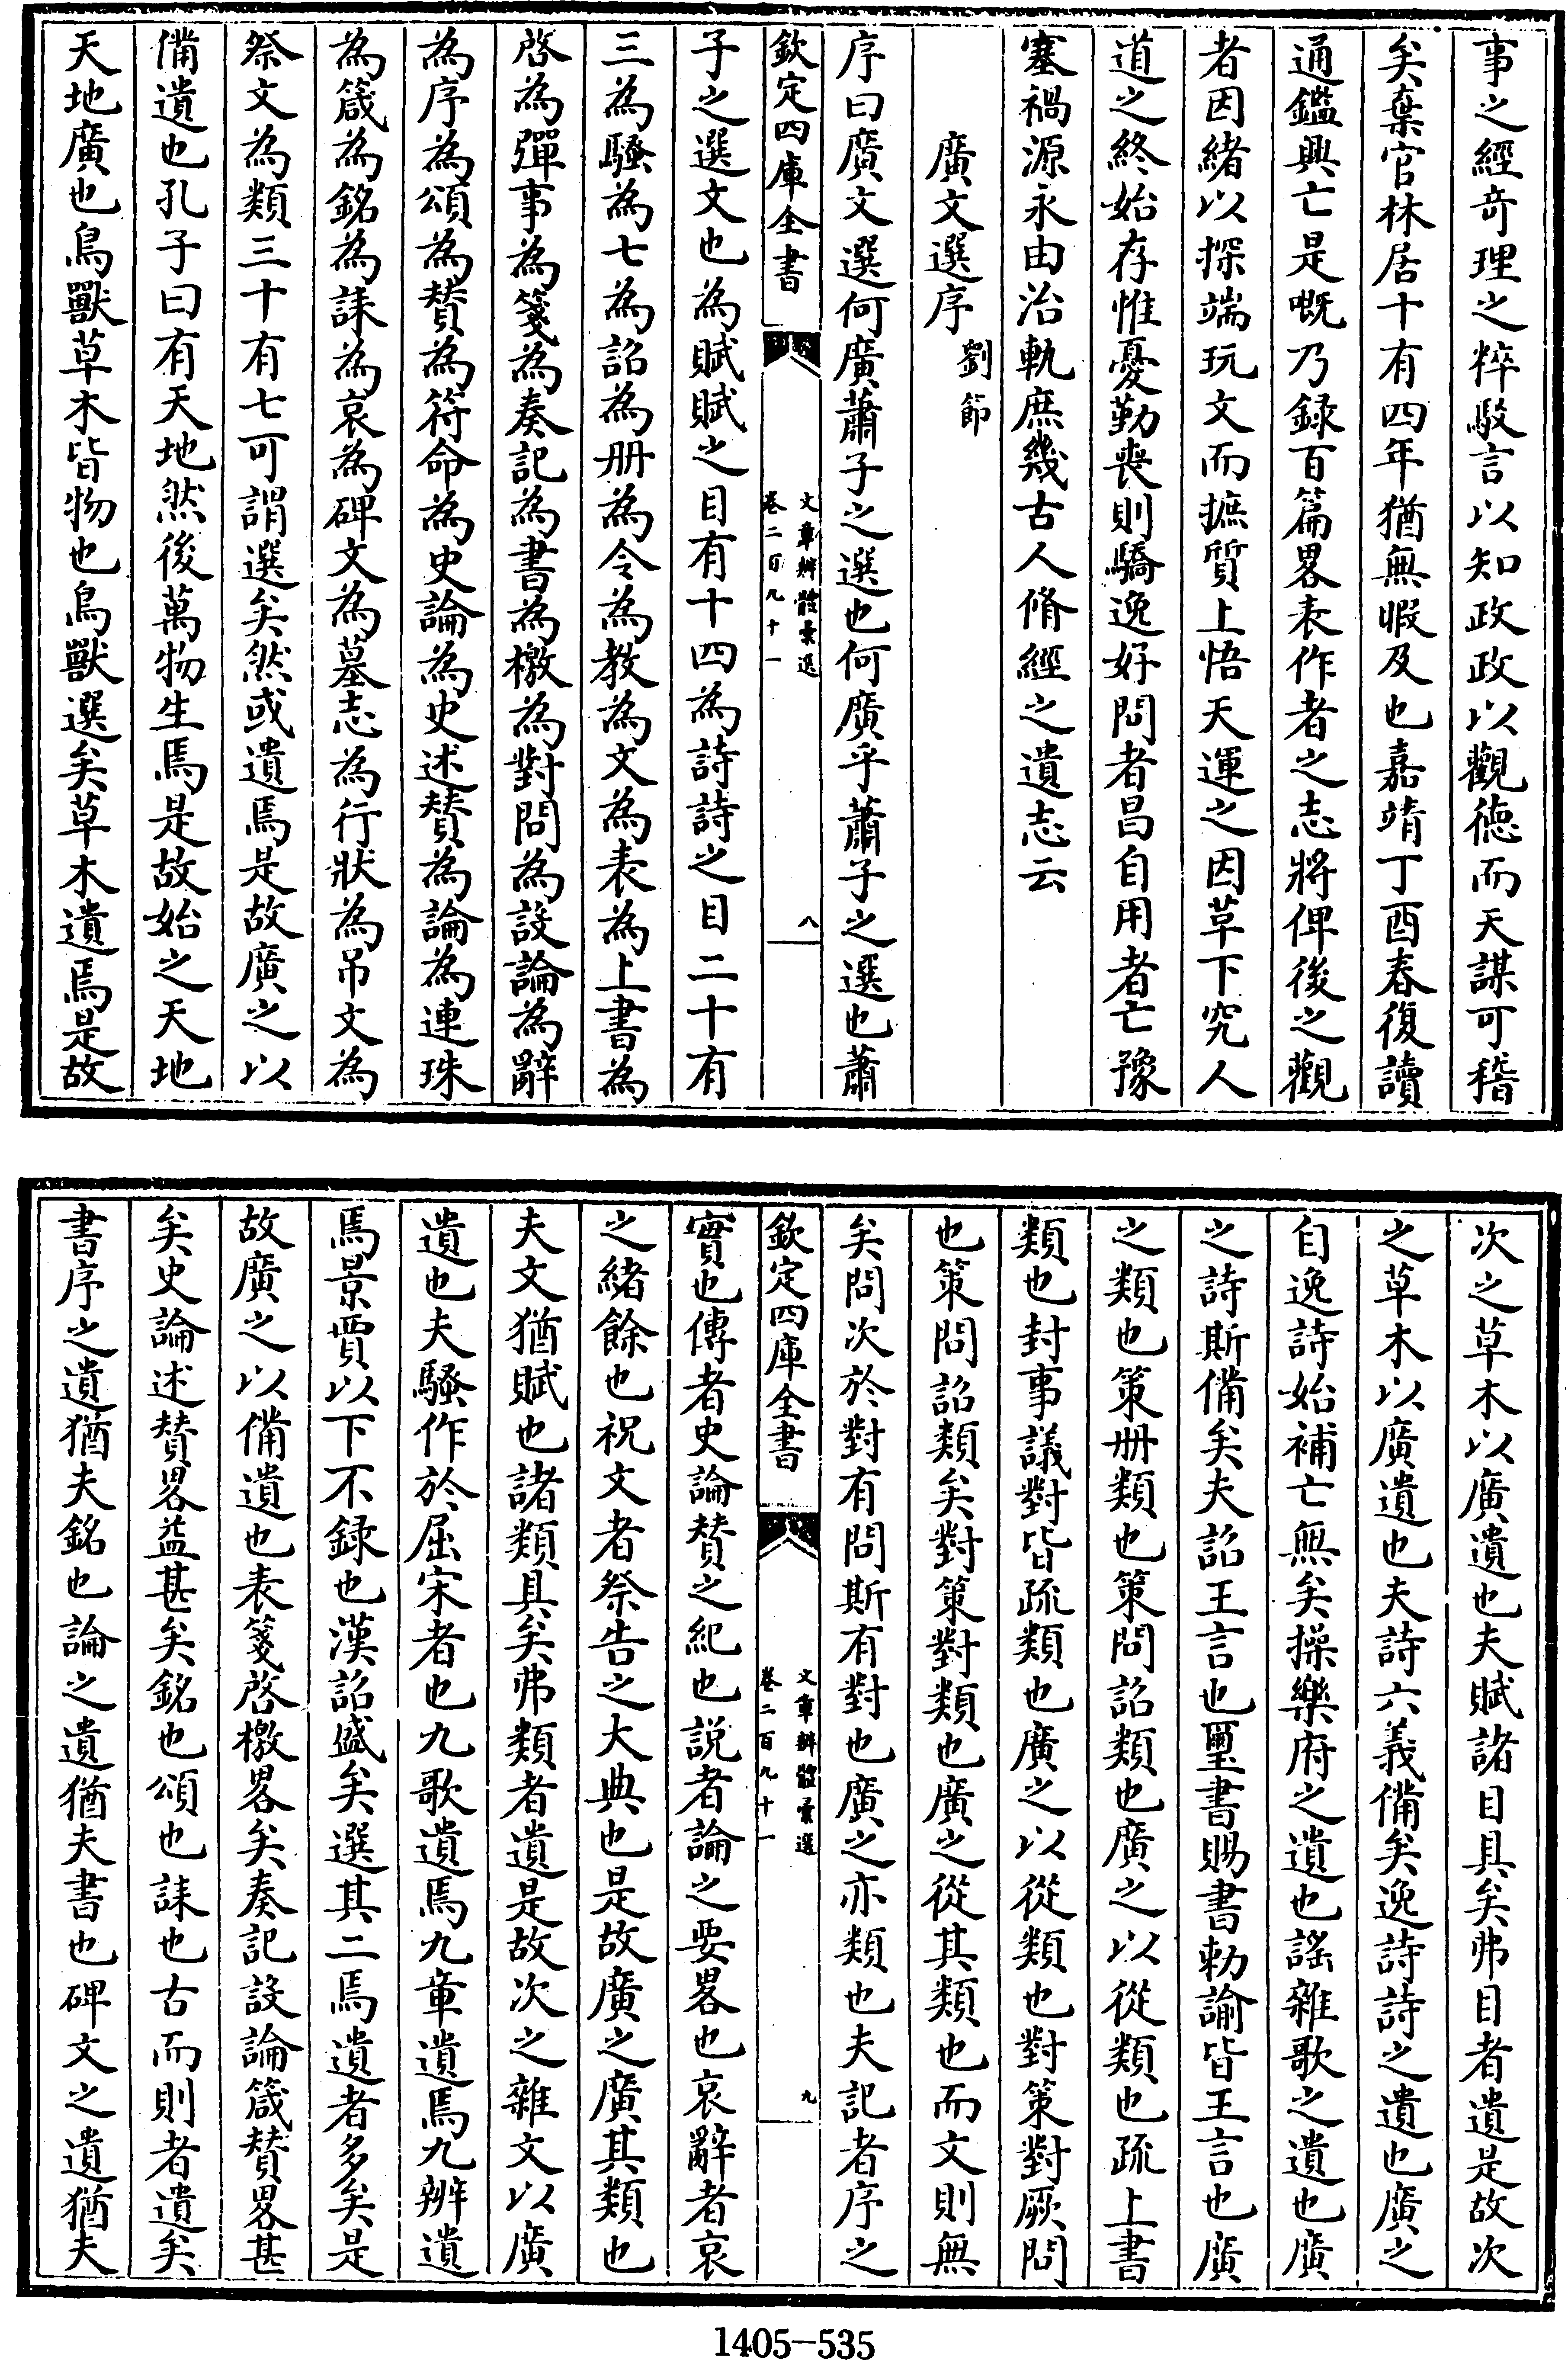 事之經奇理之粹駁言以知政政以觀徳而天謀可稽
矣棄官林居十有四年猶無暇及也嘉靖丁酉春復讀
通鑑興亡是嘅乃録百篇畧表作者之志將俾後之觀
者因緒以探端玩文而摭質上悟天運之因革下究人
道之終始存惟憂勤喪則驕逸好問者昌自用者亡豫
塞禍源永由治軌庶幾古人脩經之遺志云
廣文選序 劉節
序曰廣文選何廣蕭子之選也何廣乎蕭子之選也蕭
欽定四庫全書 文章辨體彙選 卷二百九十一 八
子之選文也為賦賦之目有十四為詩詩之目二十有
三為騷為七為詔為册為令為教為文為表為上書為
啓為彈事為箋為奏記為書為檄為對問為設論為辭
為序為頌為賛為符命為史論為史述賛為論為連珠
為箴為銘為誄為哀為碑文為墓志為行狀為吊文為
祭文為類三十有七可謂選矣然或遺焉是故廣之以
備遺也孔子曰有天地然後萬物生焉是故始之天地
天地廣也鳥獸草木皆物也鳥獸選矣草木遺焉是故
次之草木以廣遺也夫賦諸目具矣弗目者遺是故次
之草木以廣遺也夫詩六義備矣逸詩詩之遺也廣之
自逸詩始補亡無矣操樂府之遺也謠雜歌之遺也廣
之詩斯備矣夫詔王言也璽書賜書勅諭皆王言也廣
之類也策册類也策問詔類也廣之以從類也疏上書
類也封事議對皆疏類也廣之以從類也對策對厥問
也策問詔類矣對策對類也廣之從其類也而文則無
矣問次於對有問斯有對也廣之亦類也夫記者序之
欽定四庫全書 文章辨體彙選 卷二百九十一 九
實也傳者史論賛之紀也説者論之要畧也哀辭者哀
之緒餘也祝文者祭告之大典也是故廣之廣其類也
夫文猶賦也諸類具矣弗類者遺是故次之雜文以廣
遺也夫騷作於屈宋者也九歌遺焉九章遺焉九辨遺
焉景賈以下不録也漢詔盛矣選其二焉遺者多矣是
故廣之以備遺也表箋啓檄畧矣奏記設論箴賛畧甚
矣史論述賛畧益甚矣銘也頌也誄也古而則者遺矣
書序之遺猶夫銘也論之遺猶夫書也碑文之遺猶夫
1405-535